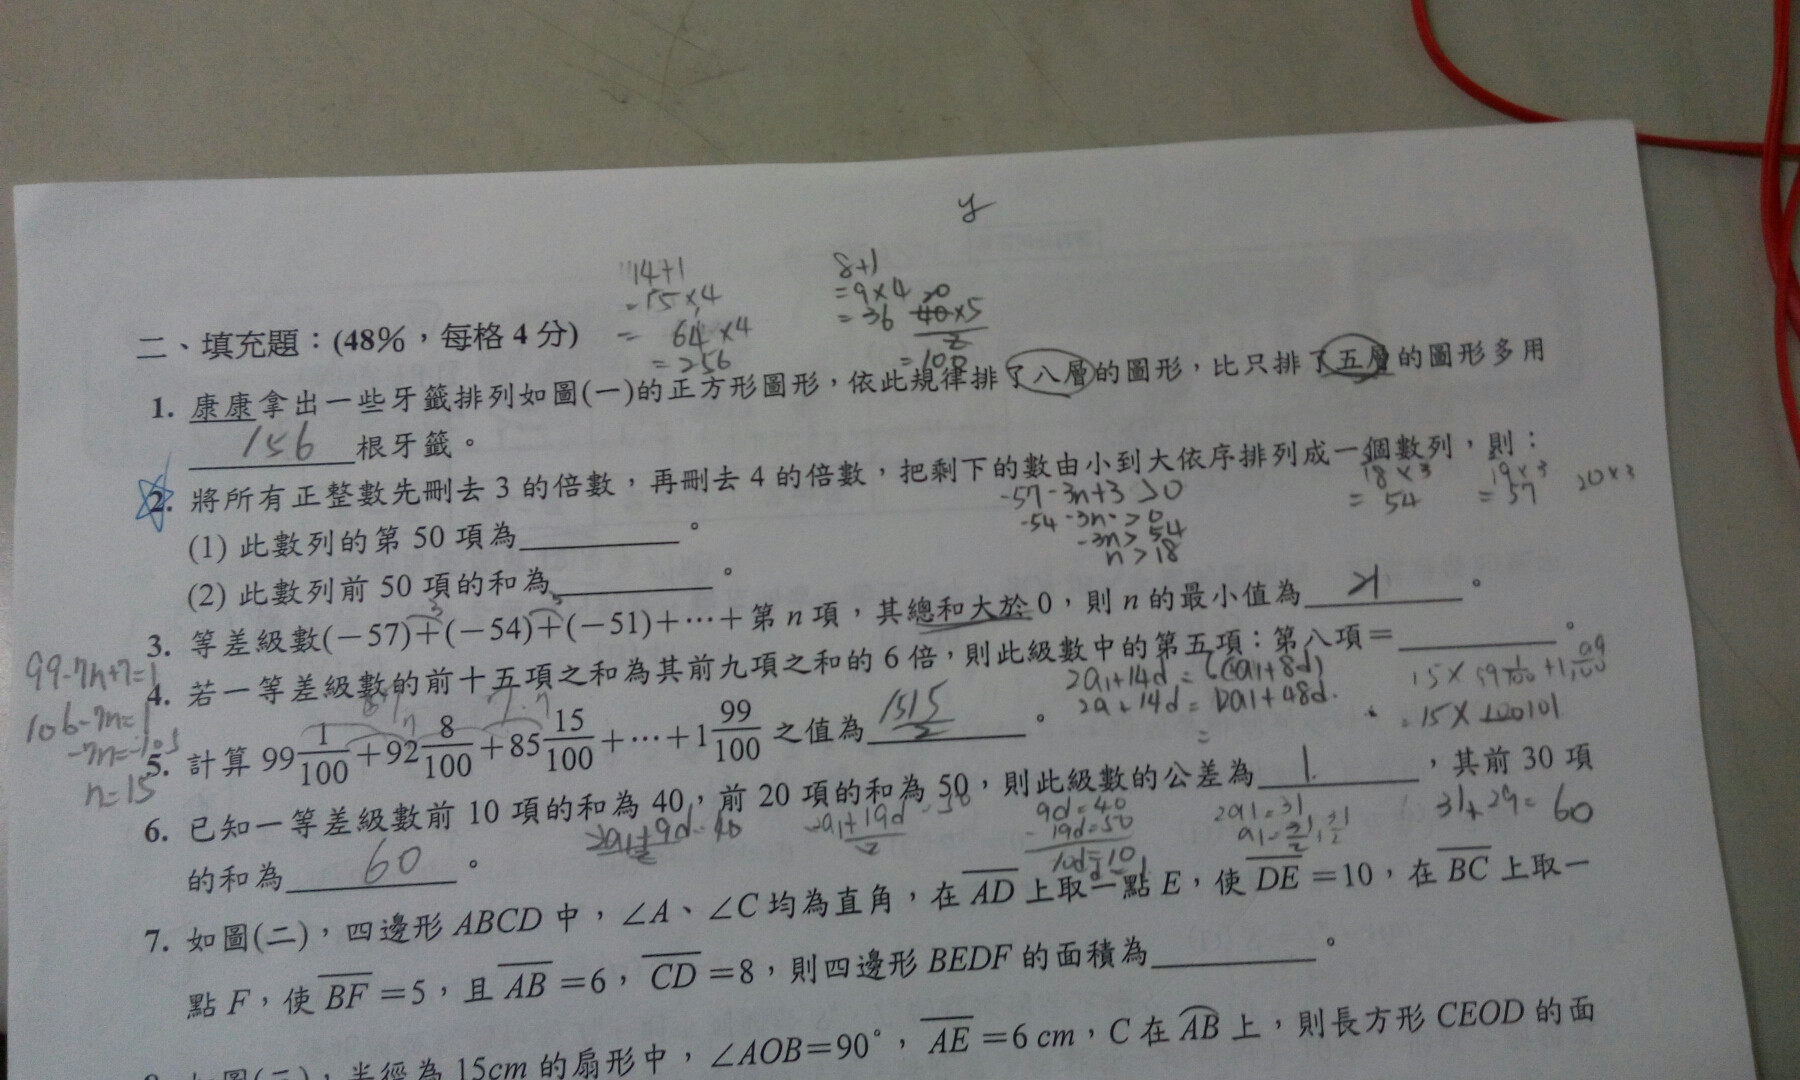 y
14+1
=15×4
= 64×4
=256
8+1
=9×4
=36
=100
二、填充題：(48%，每格 4 分)
1. 康康拿出一些牙籤排列如圖(一)的正方形圖形，依此規律排了八層的圖形，比只排了五層的圖形多用
156 根牙籤。
2. 將所有正整數先刪去 3 的倍數，再刪去 4 的倍數，把剩下的數由小到大依序排列成一個數列，則：
18×3
= 54
19×3
= 57
20×3
(1) 此數列的第 50 項為＿＿＿。
(2) 此數列前 50 項的和為＿＿＿。
-57-3n+3>0
-54-3n>0
-3n>54
n>18
3. 等差級數(−57)+(−54)+(−51)+⋯+第 n 項，其總和大於 0，則 n 的最小值為＿＿＿。
4. 若一等差級數的前十五項之和為其前九項之和的 6 倍，則此級數中的第五項：第八項=＿＿＿。
2a1+14d=6(2a1+8d)
2a+14d=12a1+48d
=
99-7n+7=1
106-7n=1
-7n=-105
n=15
5. 計算 99 1/100 + 92 8/100 + 85 15/100 + ⋯ + 1 99/100 之值為 1515/2 。
6. 已知一等差級數前 10 項的和為 40，前 20 項的和為 50，則此級數的公差為 1. ，其前 30 項
的和為 60 。
9d=40
- 19d=50
10d=10
2a1=31
31+29=60
7. 如圖(二)，四邊形 ABCD 中，∠A、∠C 均為直角，在 AD 上取一點 E，使 DE =10，在 BC 上取一
點 F，使 BF =5，且 AB =6，CD =8，則四邊形 BEDF 的面積為＿＿＿。
如圖(三)，半徑為 15cm 的扇形中，∠AOB=90°，AE =6 cm，C 在 AB 上，則長方形 CEOD 的面